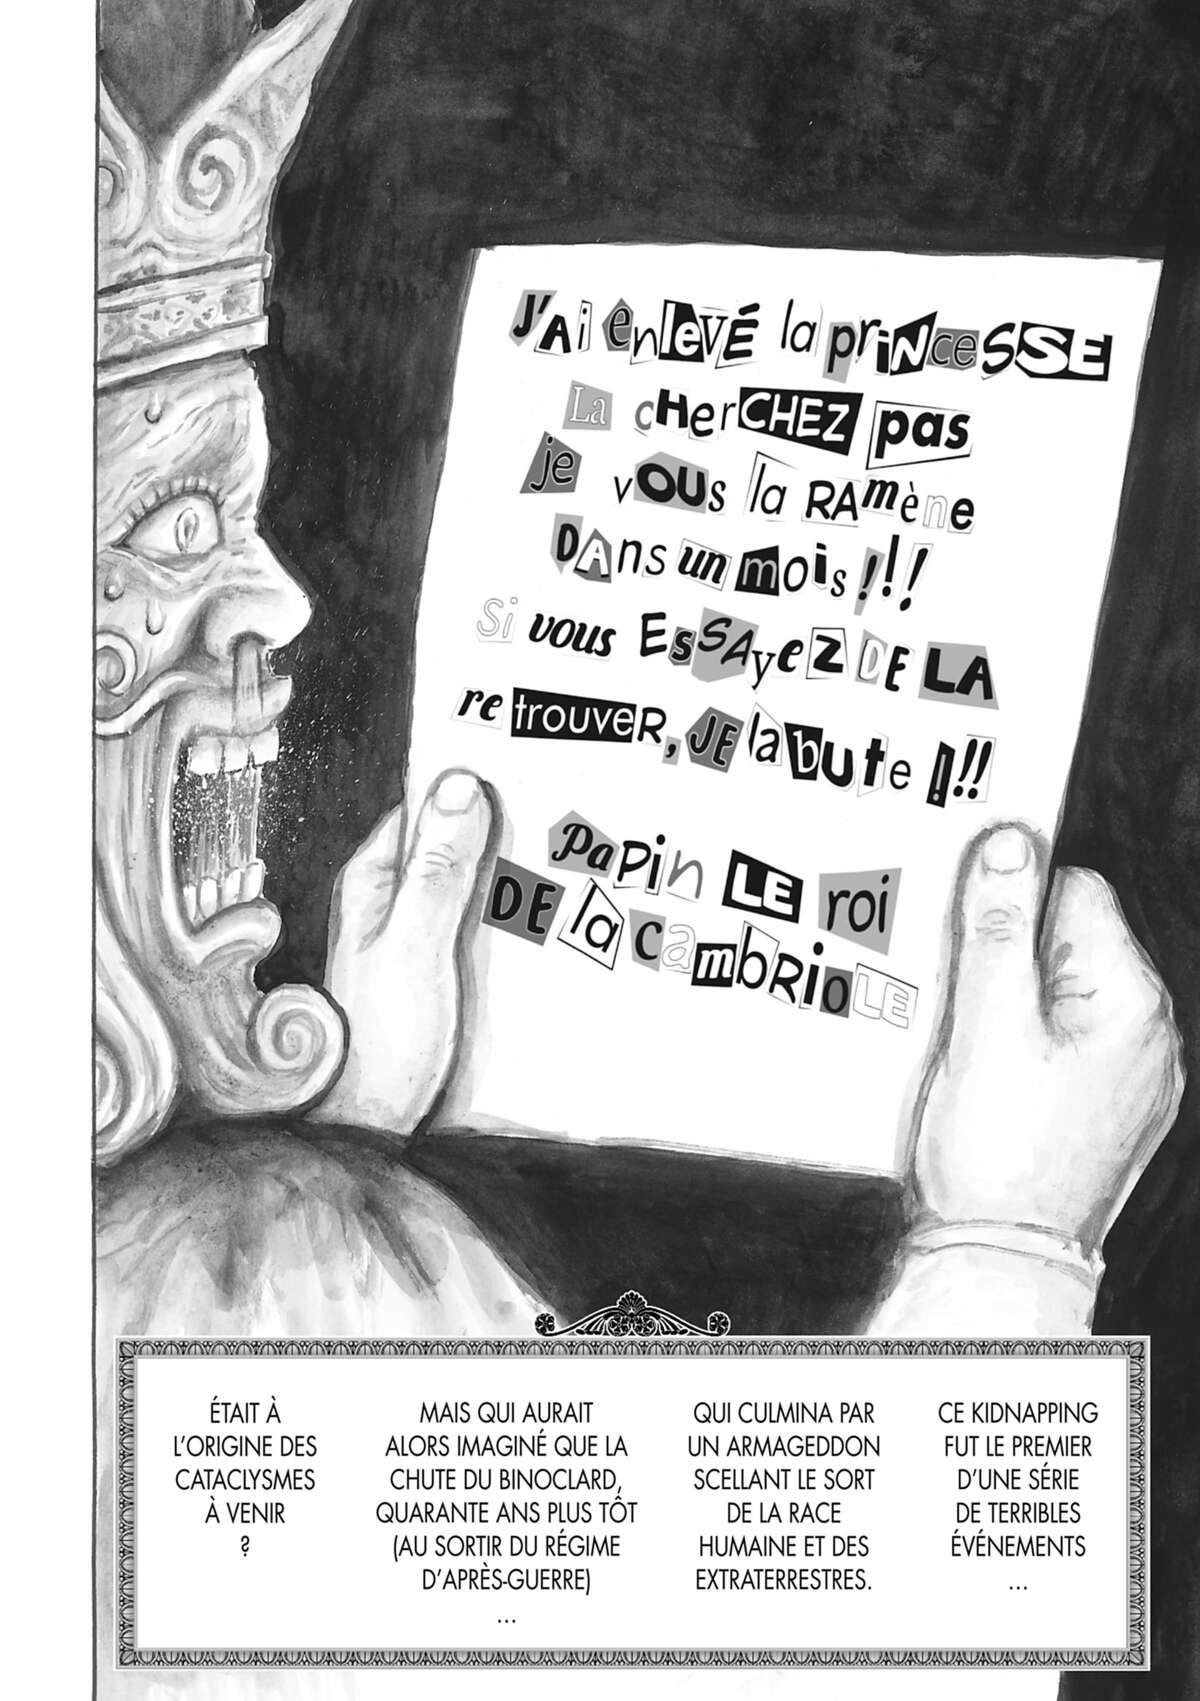 J'Ai enlevé la princESSE
La cHerCHEZ pas
je vOUs la RAmène
DAns un mois !!!
Si vous EsSAyez DE LA
re trouveR, JE la bute !!!
PaPin LE roi
DE la CambRioLE
CE KIDNAPPING
FUT LE PREMIER
D'UNE SÉRIE
DE TERRIBLES
ÉVÉNEMENTS
...
QUI CULMINA PAR
UN ARMAGEDDON
SCELLANT LE SORT
DE LA RACE
HUMAINE ET DES
EXTRATERRESTRES.
MAIS QUI AURAIT
ALORS IMAGINÉ QUE LA
CHUTE DU BINOCLARD,
QUARANTE ANS PLUS TÔT
(AU SORTIR DU RÉGIME
D'APRÈS-GUERRE)
...
ÉTAIT À
L'ORIGINE DES
CATACLYSMES
À VENIR
?